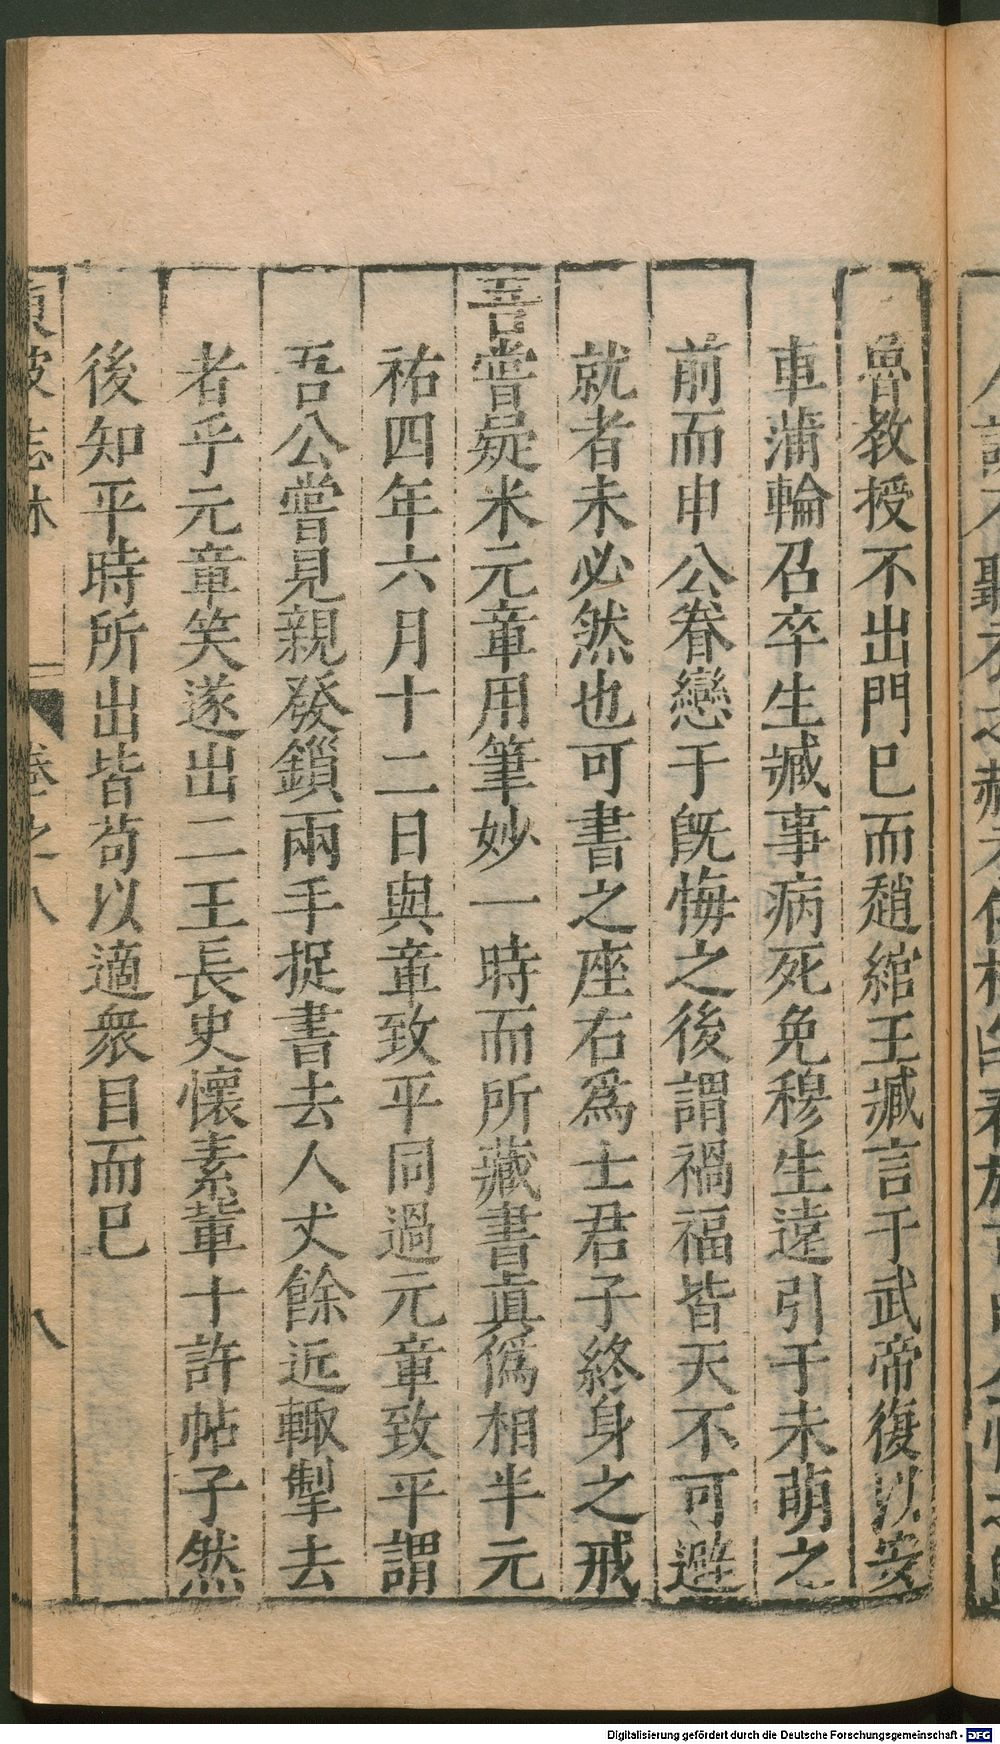 魯教授不出門已而趙綰王臧言于武帝復以安
車蒲輪召卒生臧事病死免穆生遠引于未萌之
前而申公眷戀于既悔之後謂禍福皆天不可避
就者未必然也可書之座右爲士君子終身之戒
吾嘗疑米元章用筆妙一時而所藏書眞僞相半元
祐四年六月十二日與章致平同過元章致平謂
吾公嘗見親發鎖兩手捉書去人丈餘近輙掣去
者乎元章笑遂出二王長史懷素輩十許帖子然
後知平時所出皆苟以適衆目而已
東坡志林 卷之八 八
Digitalisierung gefördert durch die Deutsche Forschungsgemeinschaft - DFG